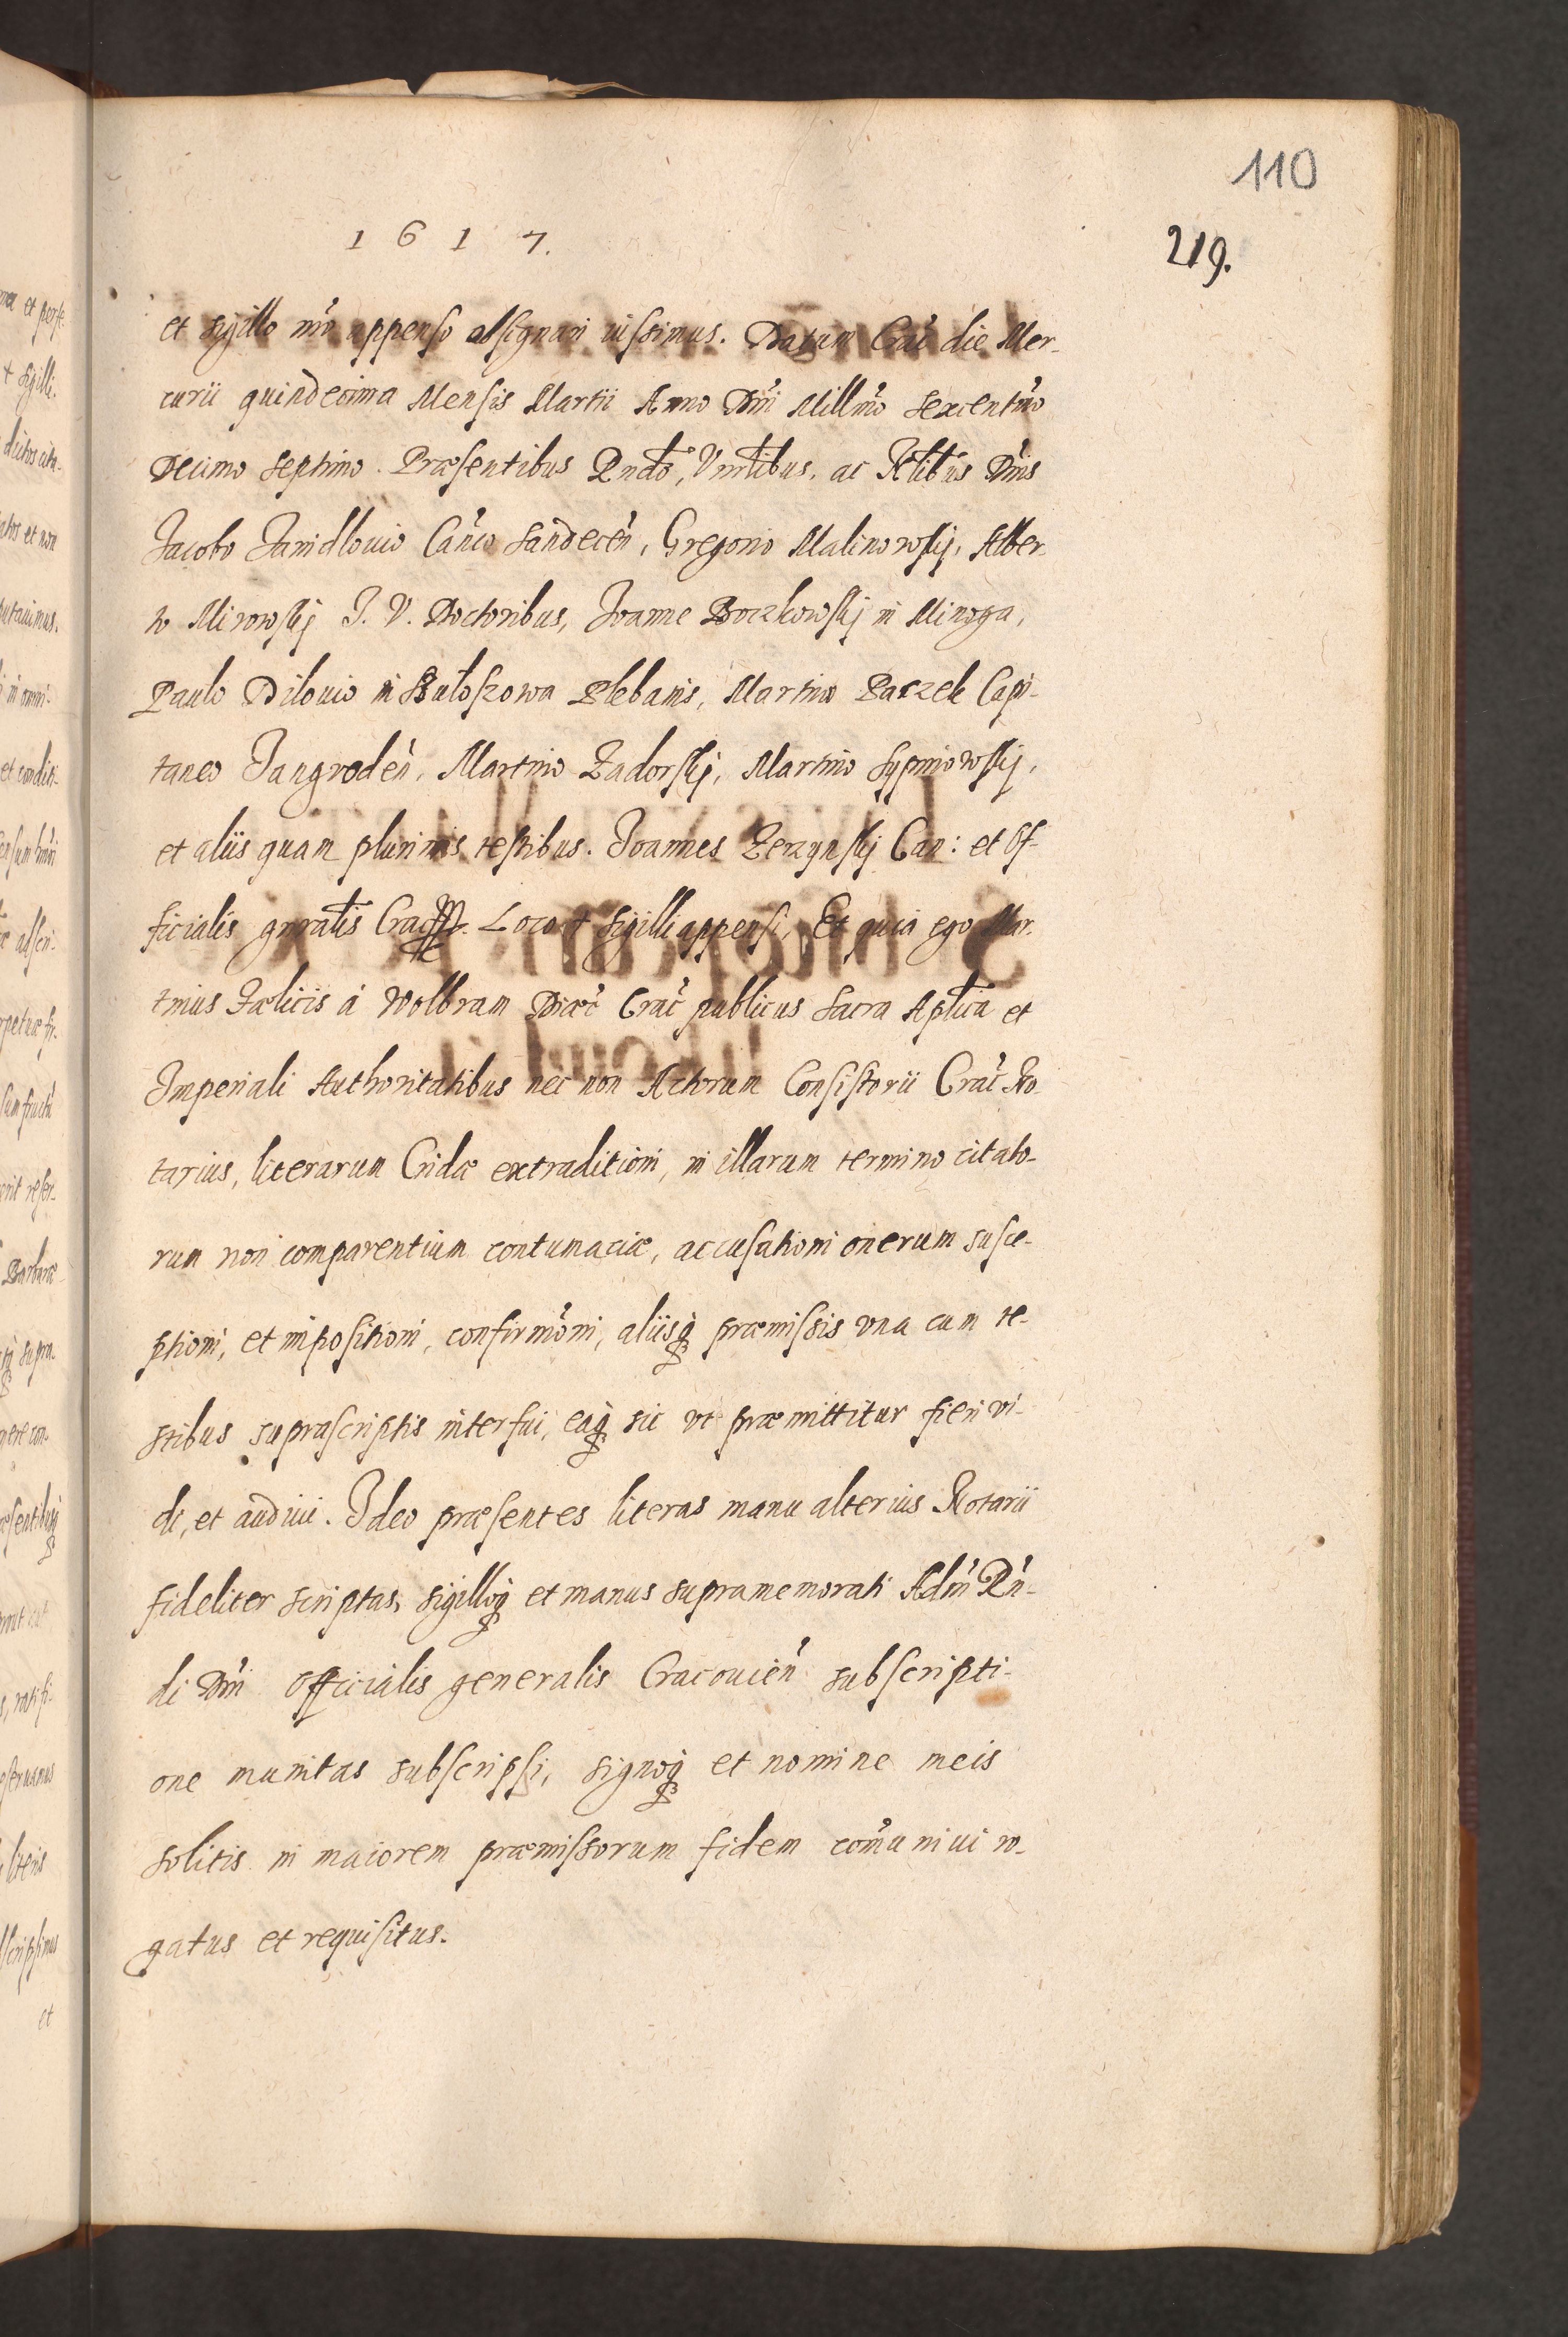 110
1617.
219.
et sigillo nr̃o appenso assignari iussimus. Datum Crac̃ die Mer-
curii quindecima Mensis Martii Anno Dñi Millmõ sexcentmõ
Decimo Septimo. Præsentibus Rndõ, Vnrlibus, ac Nlibus Dñis
Jacobo Janidlouio Cañco Sandeceñ, Gregorio Malinowskj, Alber-
to Mirowskj J. V. Doctoribus, Joanne Boczkowskj in Minoga,
Paulo Dilouio in Sułoszowa Plebanis, Martino Paczek Capi-
taneo Jangrodeñ, Martino Zadorskj, Martino Sypniowskj,
et aliis quam plurimis testibus. Joannes Zerzynskj Can: et Of-
ficialis gnralis Crac. Loco + sigilli appensi, Et quia ego Mar-
tinus Fælicis á Wolbram Diæc̃ Crac̃ publicus Sacra Aplica et
Imperiali Authoritatibus nec non Actorum Consistorii Crac̃ No-
tarius, literarum Cridæ extraditioni, in illarum termino citato-
rum non comparentium contumaciæ, accusationi onerum susce-
ptioni, et impositioni, confirmõni, aliisq̃ præmissis vna cum te-
stibus suprascriptis interfui, eaq̃ sic vt præmittitur fieri vi-
di, et audiui. Ideo præsentes literas manu alterius Notarii
fideliter scriptas, sigilloq̃ et manus supramemorati Adm̃ Rñ-
di Dñi Officialis generalis Cracouieñ subscripti-
one munitas subscripsi, signoq̃ et nomine meis
solitis in maiorem præmissorum fidem com̃uniui ro-
gatus et requisitus.